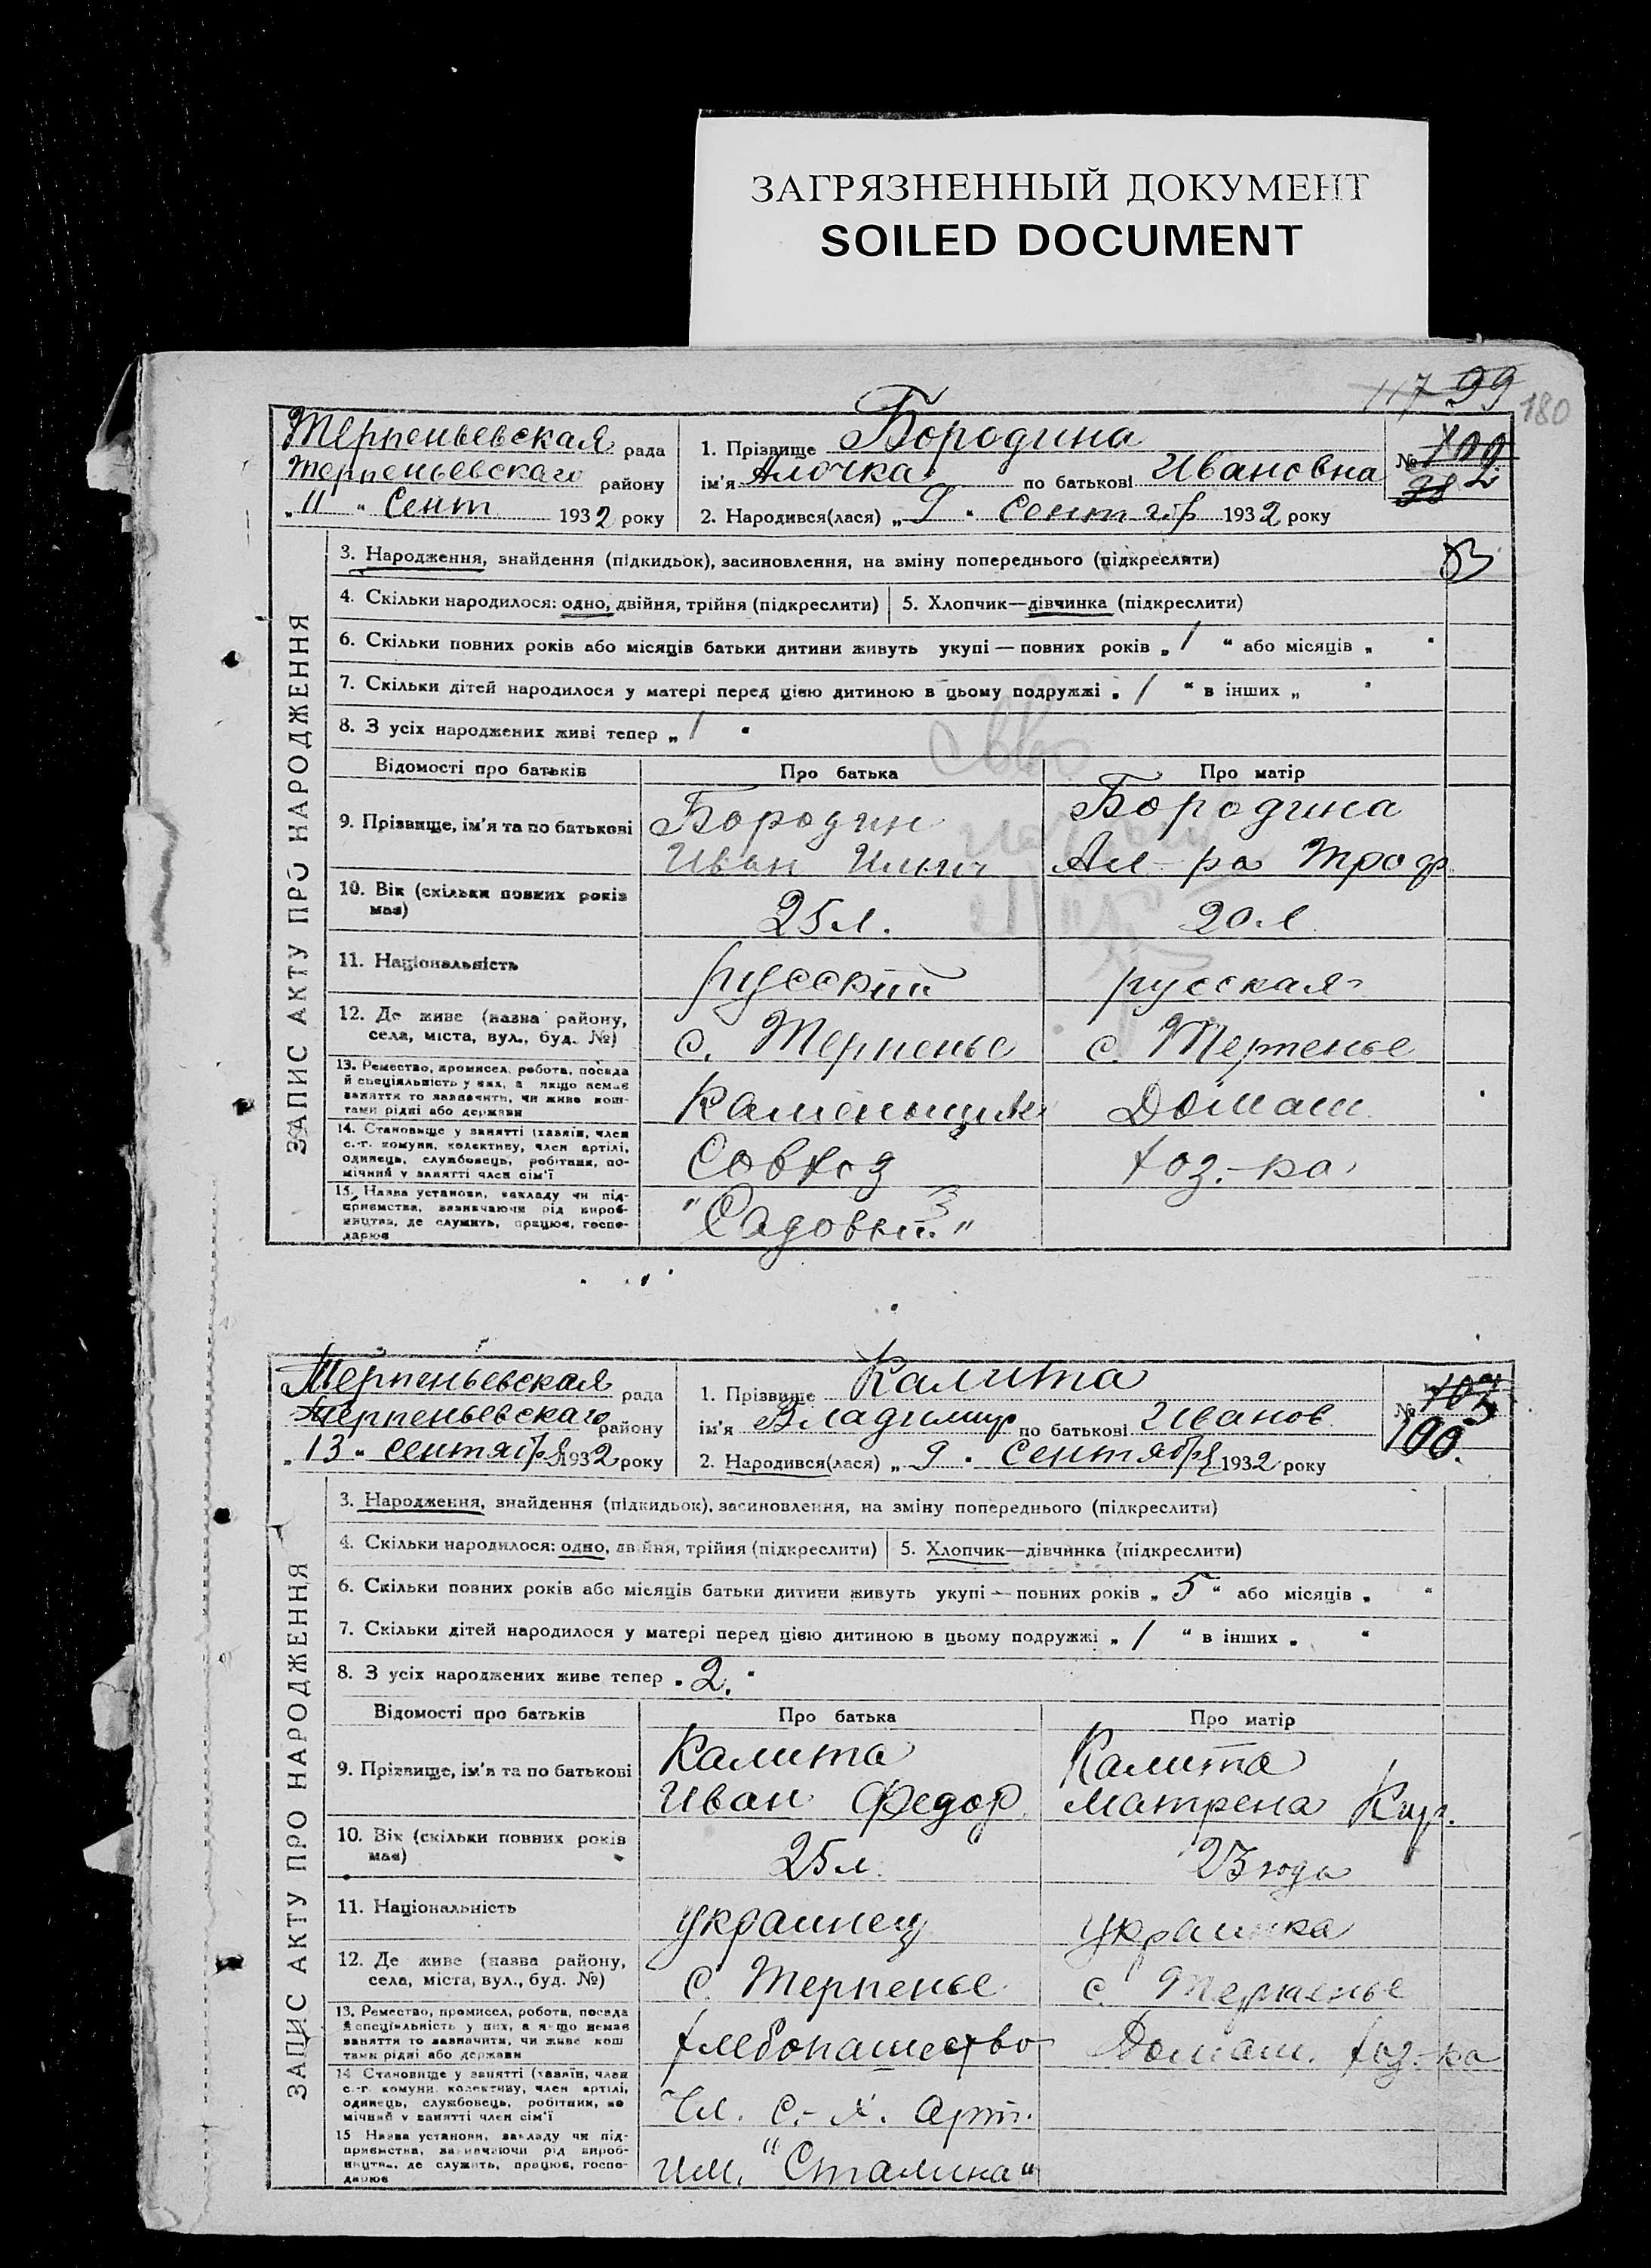 ЗАГРЯЗНЕННЫЙ ДОКУМЕНТ
SOILED DOCUMENT
117 99
180
Терпеньевская рада
Терпеньевскаго району
„ 11 “ Сент 1932 року
1. Прізвище Бородина
ім'я Алочка по батькові Ивановна
2. Народився(лася) „ 9 “ Сентябр 1932 року
№ 100
98
ЗАПИС АКТУ ПРО НАРОДЖЕННЯ
3. Народження, знайдення (підкидьок), засиновлення, на зміну попереднього (підкреслити)
4. Скільки народилося: одно, двійня, трійня (підкреслити) 5. Хлопчик—дівчинка (підкреслити)
6. Скільки повних років або місяців батьки дитини живуть укупі — повних років „ 1 “ або місяців „ “
7. Скільки дітей народилося у матері перед цією дитиною в цьому подружжі „ 1 “ в інших „ “
8. З усіх народжених живі тепер „ 1 “
Відомості про батьків Про батька Про матір
9. Прізвище, ім'я та по батькові
Бородин
Иван Ильич
Бородина
Ал-ра Троф.
10. Вік (скільки повних років має)
25 л. 20 л.
11. Національність русский русская
12. Де живе (назва району,
села, міста, вул., буд. №)
с. Терпенье с. Терпенье
13. Ремество, промисел, робота, посада
й спеціяльність у них, а якщо немає
заняття то зазначити, чи живе кош-
тами рідні або держави
Каменьщик Домаш.
14. Становище у занятті (хазяїн, член
с.-г. комуни, колективу, член артілі,
одинець, службовець, робітник, по-
мічний у занятті член сім'ї
Совхоз хоз.-ка
15. Назва установи, закладу чи під-
приємства, зазначаючи рід вироб-
ництва, де служить, працює, госпо-
дарює
"Садовый"
Терпеньевская рада
Терпеньевскаго району
„ 13 “ Сентября 1932 року
1. Прізвище Калита
ім'я Владимир по батькові Иванов.
2. Народився(лася) „ 9 “ Сентября 1932 року
№
100.
ЗАПИС АКТУ ПРО НАРОДЖЕННЯ
3. Народження, знайдення (підкидьок), засиновлення, на зміну попереднього (підкреслити)
4. Скільки народилося: одно, двійня, трійня (підкреслити) 5. Хлопчик—дівчинка (підкреслити)
6. Скільки повних років або місяців батьки дитини живуть укупі — повних років „ 5 “ або місяців „ “
7. Скільки дітей народилося у матері перед цією дитиною в цьому подружжі „ 1 “ в інших „ “
8. З усіх народжених живе тепер „ 2. “
Відомості про батьків Про батька Про матір
9. Прізвище, ім'я та по батькові
Калита
Иван Федор.
Калита
Матрена Кир.
10. Вік (скільки повних років має)
25 л. 23 года
11. Національність украинец украинка
12. Де живе (назва району,
села, міста, вул., буд. №)
с. Терпенье с. Терпенье
13. Ремество, промисел, робота, посада
й спеціяльність у них, а якщо немає
заняття то зазначити, чи живе кош
тами рідні або держави
хлебопашество Домаш. хоз.-ка
14 Становище у занятті (хазяїн, член
с.-г. комуни, колективу, член артілі,
одинець, службовець, робітник, по
мічний у занятті член сім'ї
Чл. с.-х. арт.
15 Назва установи, закладу чи під-
приємства, зазначаючи рід вироб-
ництва, де служить, працює, госпо-
дарює
им. "Сталина"